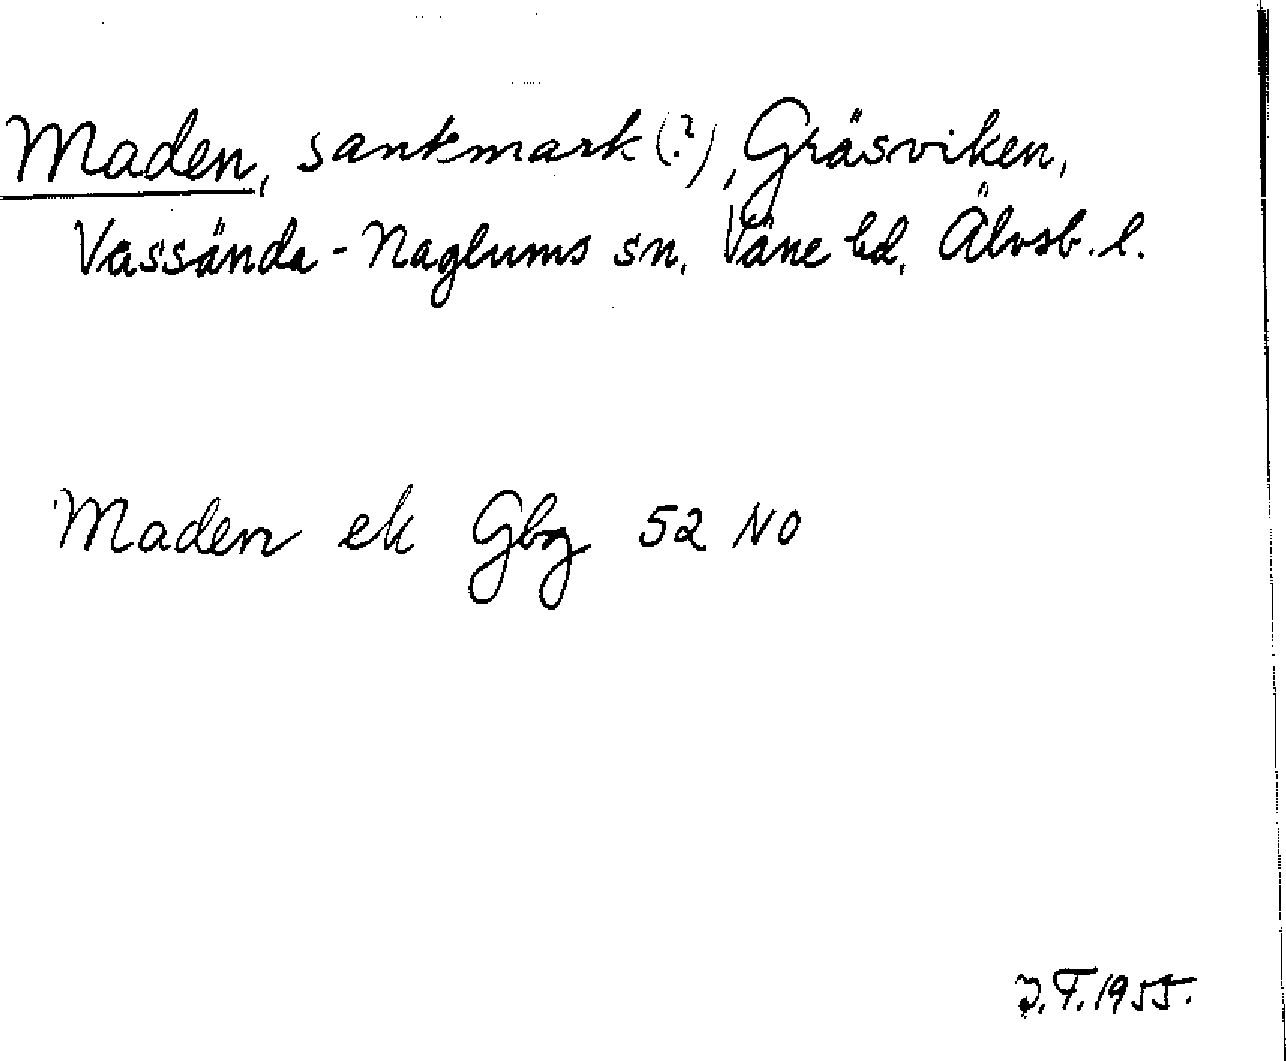 Maden, sankmark (?), Gräsviken,
Vassända-Naglums sn, Väne hd, Älvsb. l.
Maden ek Gbg 52 NO
J.F. 1955.